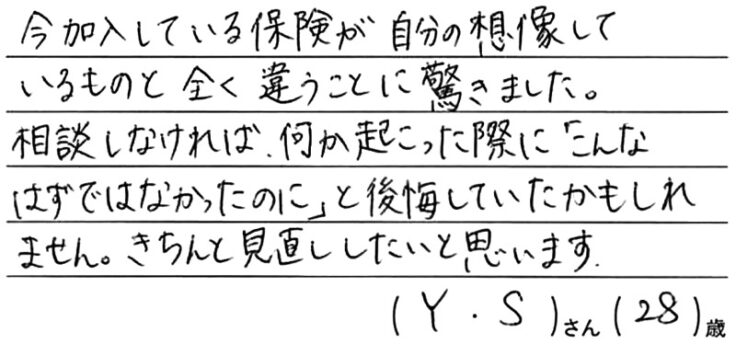 今加入している保険が自分の想像して
いるものと全く違うことに驚きました。
相談しなければ、何か起こった際に「こんな
はずではなかったのに」と後悔していたかもしれ
ません。きちんと見直ししたいと思います.
(Y.S)さん(28)歳